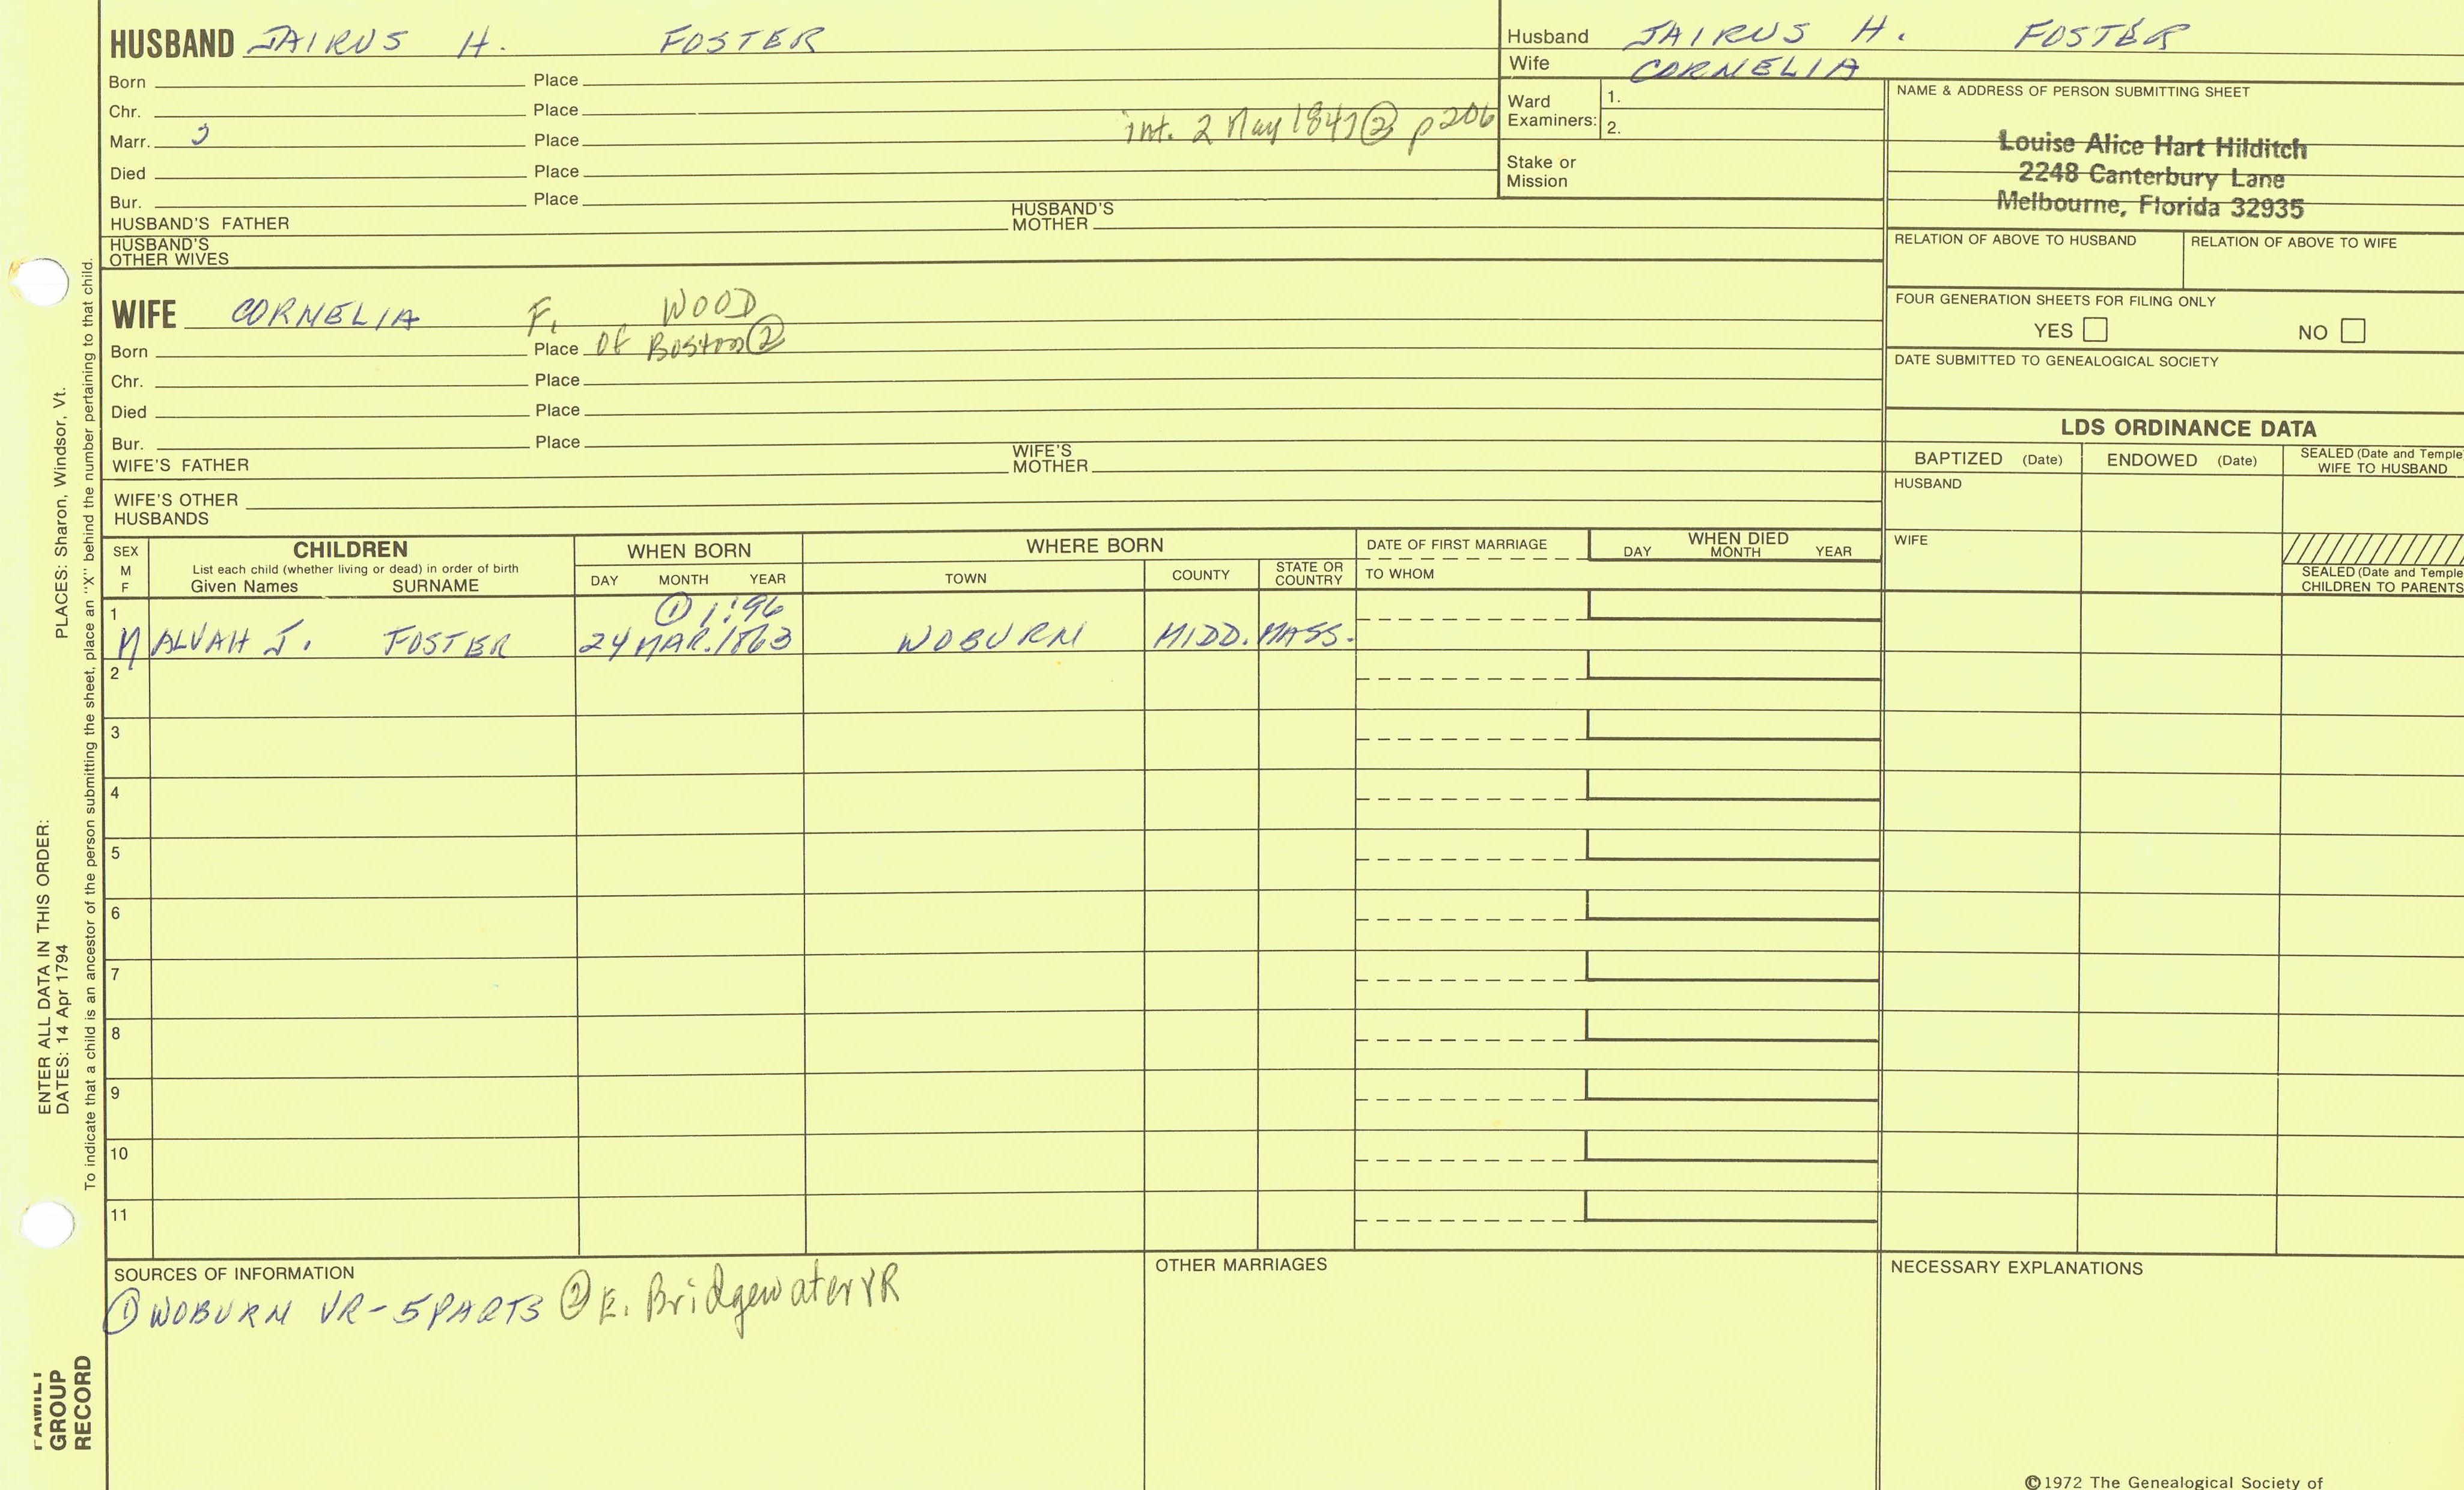 HUSBAND JAIRUS H. FOSTER
Born Place
Chr. Place
Marr. Place int. 2 May 1847 ② p206
Died Place
Bur. Place
HUSBAND'S FATHER HUSBAND'S MOTHER
HUSBAND'S OTHER WIVES
Husband JAIRUS H. FOSTER
Wife CORNELIA
Ward Examiners: 1. 2.
Stake or Mission
NAME & ADDRESS OF PERSON SUBMITTING SHEET
Louise Alice Hart Hilditch
2248 Canterbury Lane
Melbourne, Florida 32935
RELATION OF ABOVE TO HUSBAND RELATION OF ABOVE TO WIFE
FOUR GENERATION SHEETS FOR FILING ONLY
YES NO
DATE SUBMITTED TO GENEALOGICAL SOCIETY
WIFE CORNELIA F. WOOD
Born Place of Boston ②
Chr. Place
Died Place
Bur. Place
WIFE'S FATHER WIFE'S MOTHER
WIFE'S OTHER HUSBANDS
LDS ORDINANCE DATA
BAPTIZED (Date) ENDOWED (Date) SEALED (Date and Temple
WIFE TO HUSBAND
HUSBAND
WIFE
SEALED (Date and Temple
CHILDREN TO PARENTS
SEX M F
CHILDREN
List each child (whether living or dead) in order of birth
Given Names SURNAME
WHEN BORN
DAY MONTH YEAR
WHERE BORN
TOWN COUNTY STATE OR COUNTRY
DATE OF FIRST MARRIAGE
TO WHOM
WHEN DIED
DAY MONTH YEAR
1 ① 1:96
M ALVAH J. FOSTER 24 MAR. 1863 WOBURN MIDD. MASS.
2
3
4
5
6
7
8
9
10
11
SOURCES OF INFORMATION
① WOBURN VR - 5 PARTS ② E. Bridgewater VR
OTHER MARRIAGES
NECESSARY EXPLANATIONS
©1972 The Genealogical Society of
ENTER ALL DATA IN THIS ORDER:
DATES: 14 Apr 1794 PLACES: Sharon, Windsor, Vt.
To indicate that a child is an ancestor of the person submitting the sheet, place an "X" behind the number pertaining to that child.
FAMILY
GROUP
RECORD